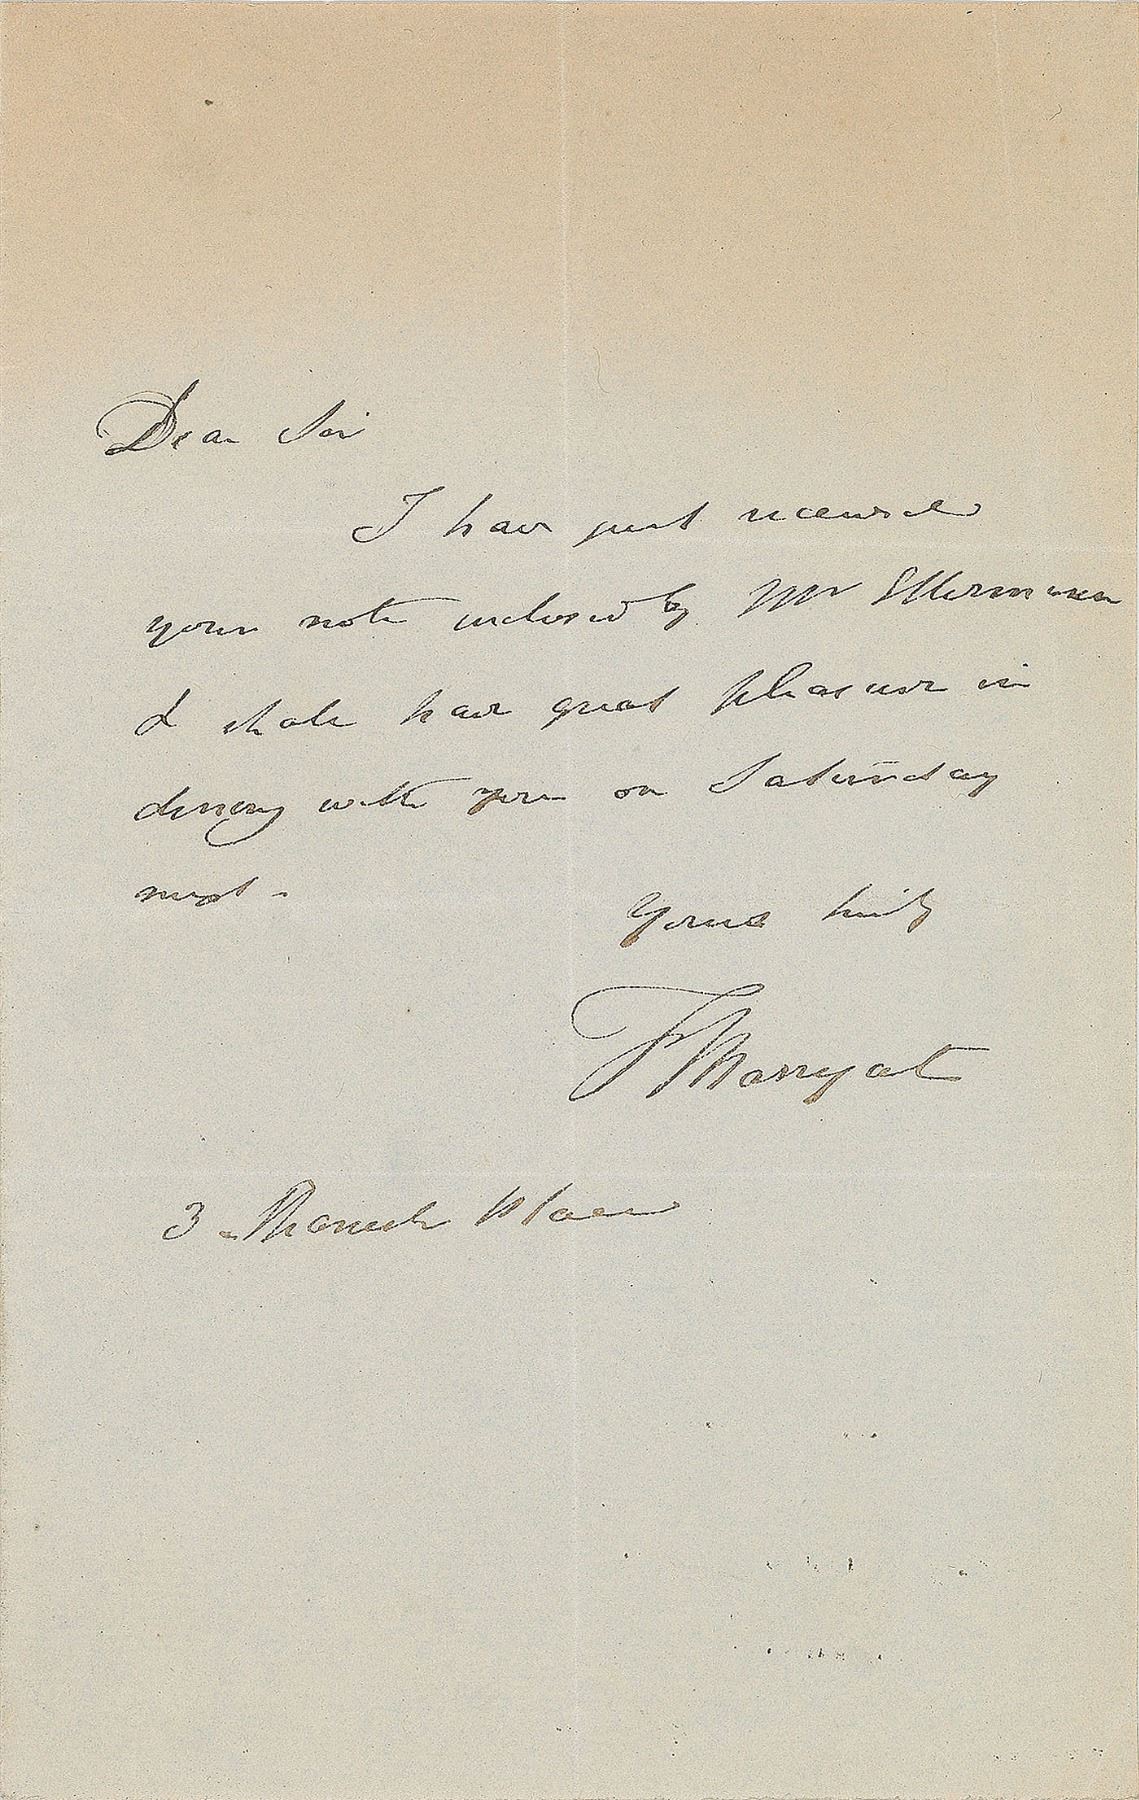 Dear Sir
I have just received
your note inclosed by Mr
I shall have great pleasure in
dining with you on Saturday
next -
Yours truly
F Marryat
3 Place